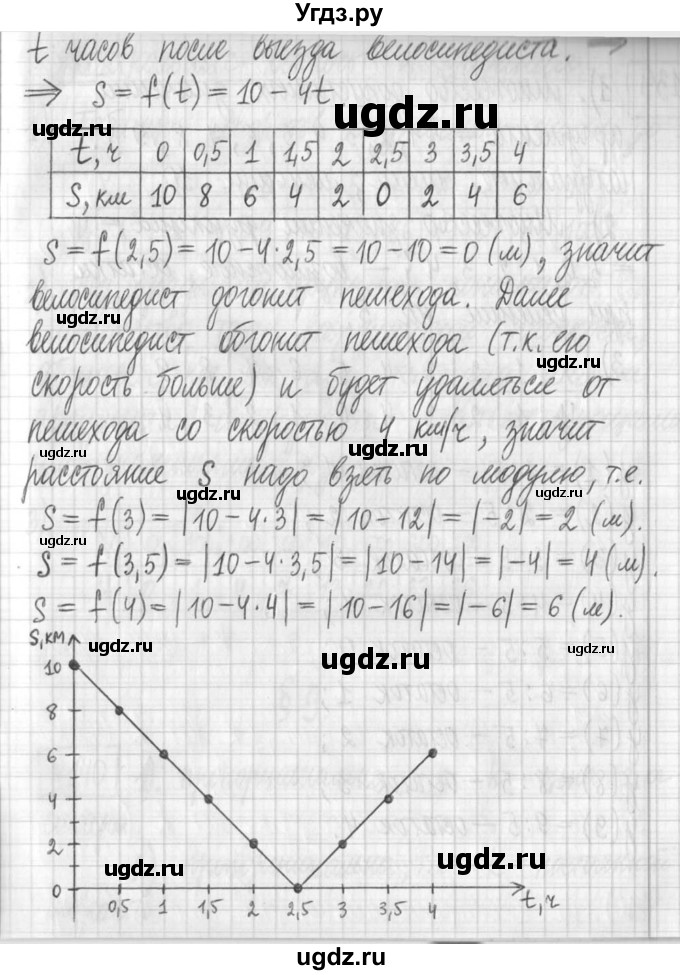 Угдз.ру
t часов после выезда велосипедиста.
⇒ S = f(t) = 10 - 4t
ugdz.ru
ugdz.ru
t, ч 0 0,5 1 1,5 2 2,5 3 3,5 4
ugdz.ru
S, км 10 8 6 4 2 0 2 4 6
S = f(2,5) = 10 - 4·2,5 = 10 - 10 = 0 (м), значит
ugdz.ru
велосипедист догонит пешехода. Далее
ugdz.ru
велосипедист обгонит пешехода (т.к. его
ugdz.ru
скорость больше) и будет удаляться от
ugdz.ru
пешехода со скоростью 4 км/ч, значит
расстояние S надо взять по модулю, т.е.
ugdz.ru
ugdz.ru
S = f(3) = |10 - 4·3| = |10 - 12| = |-2| = 2 (м).
ugdz.ru
S = f(3,5) = |10 - 4·3,5| = |10 - 14| = |-4| = 4 (м).
ugdz.ru
S = f(4) = |10 - 4·4| = |10 - 16| = |-6| = 6 (м).
S, км
ugdz.ru
ugdz.ru
10
8
6
4
ugdz.ru
2
ugdz.ru
ugdz.ru
0
0,5 1 1,5 2 2,5 3 3,5 4 t, ч
ugdz.ru
ugdz.ru